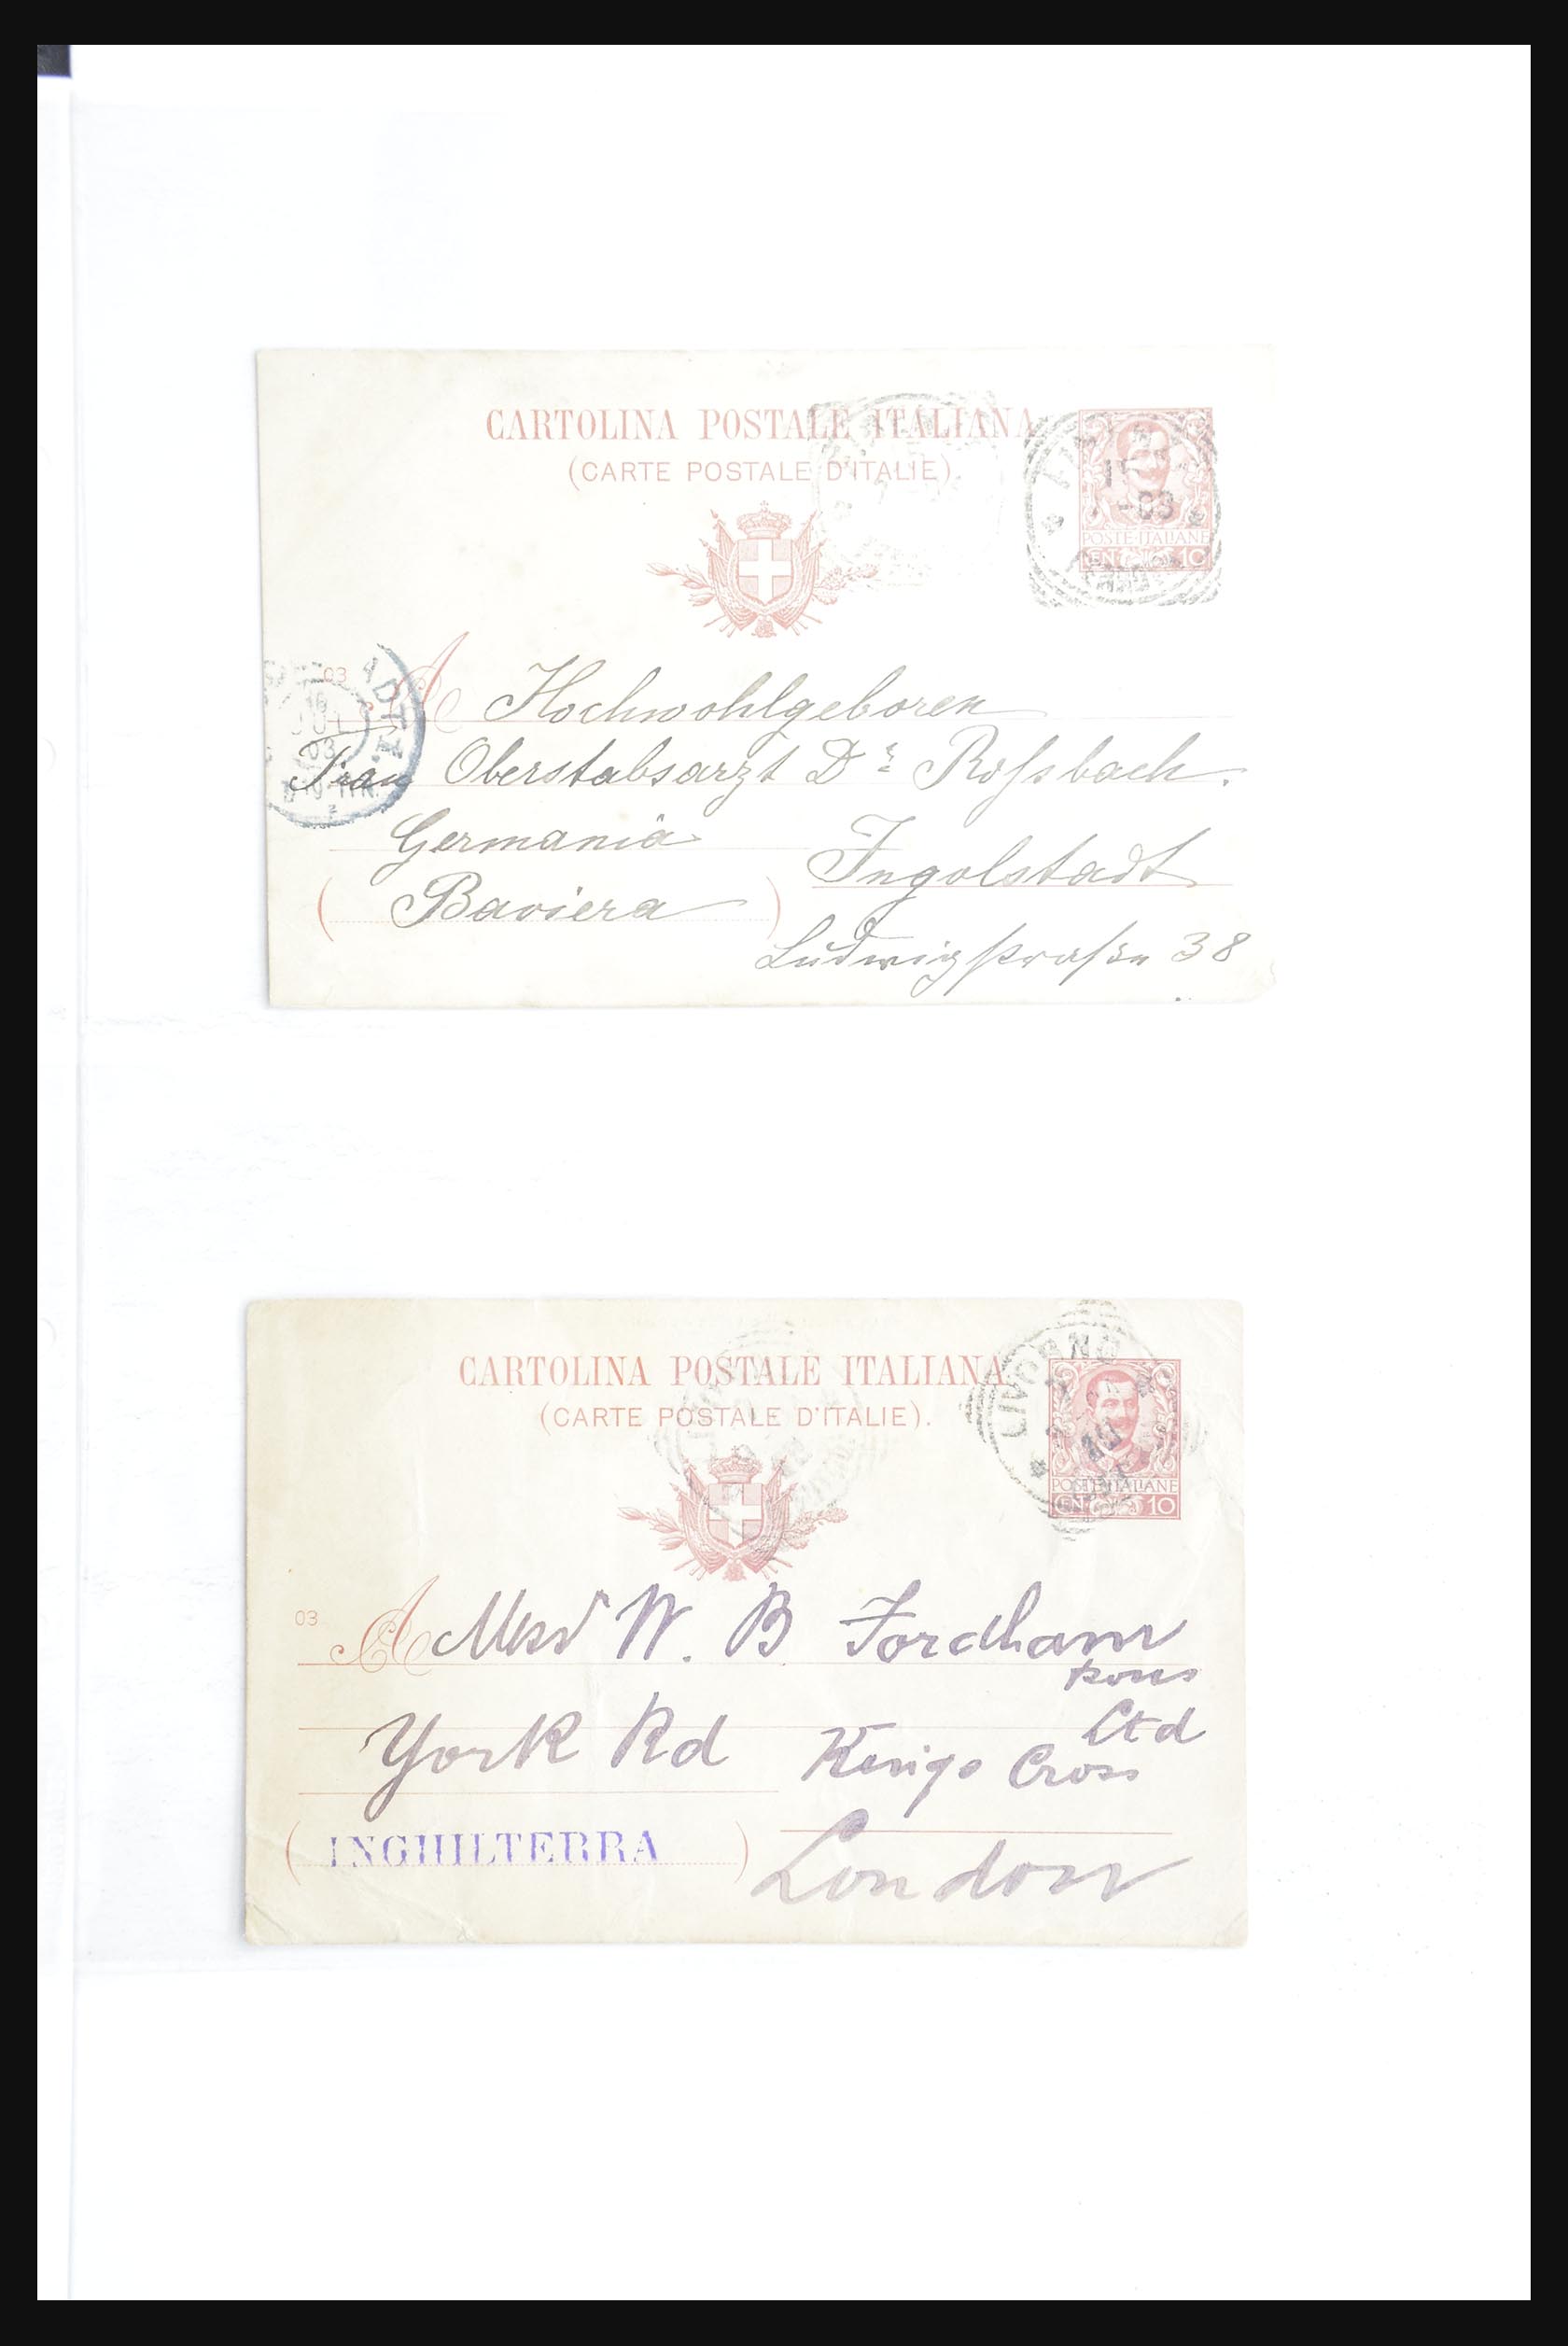 CARTOLINA POSTALE ITALIANA
(CARTE POSTALE D'ITALIE).
15
-03
POSTE ITALIANE
CEN 10
03
A Hochwohlgeboren
ADT I.
16
JUL
03
Frau Oberstabsarzt Dr. Roßsbach.
Germania
Ingolstadt
( Baviera )
Ludwigstraße 38
CARTOLINA POSTALE ITALIANA
(CARTE POSTALE D'ITALIE).
LIVORNO
POSTE ITALIANE
CEN 10
03
A Messrs W. B Fordham
Sons
Ltd
York Rd Kings Cross
( INGHILTERRA )
London